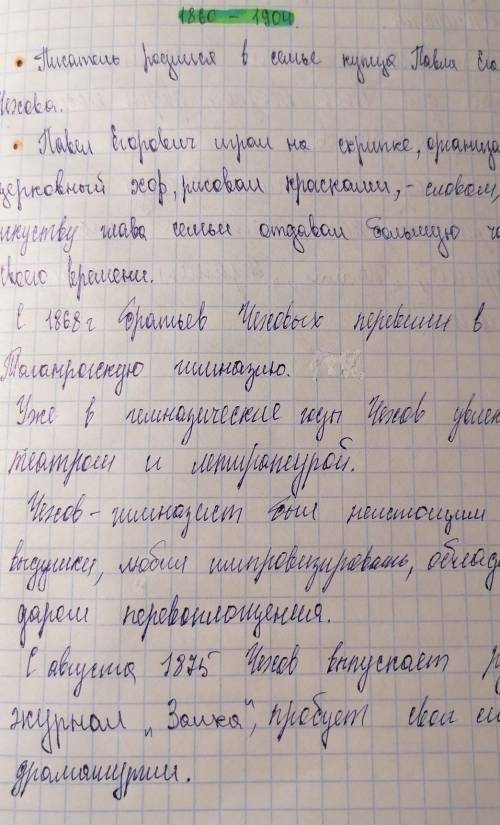 1860 – 1904.
• Писатель родился в семье купца Павла Его
Чехова.
• Павел Егорович играл на скрипке, организа
церковный хор, рисовал красками, - словом,
искуству глава семьи отдавал большую ча
своего времени.
С 1868 г братьев Чеховых перевели в
Таганрогскую гимназию.
Уже в гимназические годы Чехов увлек
театром и литературой.
Чехов – гимназист был неистощим
выдумки, любил импровизировать, облада
даром перевоплощения.
С августа 1875 Чехов выпускает
журнал „Заика", пробует свои си
драматургии.